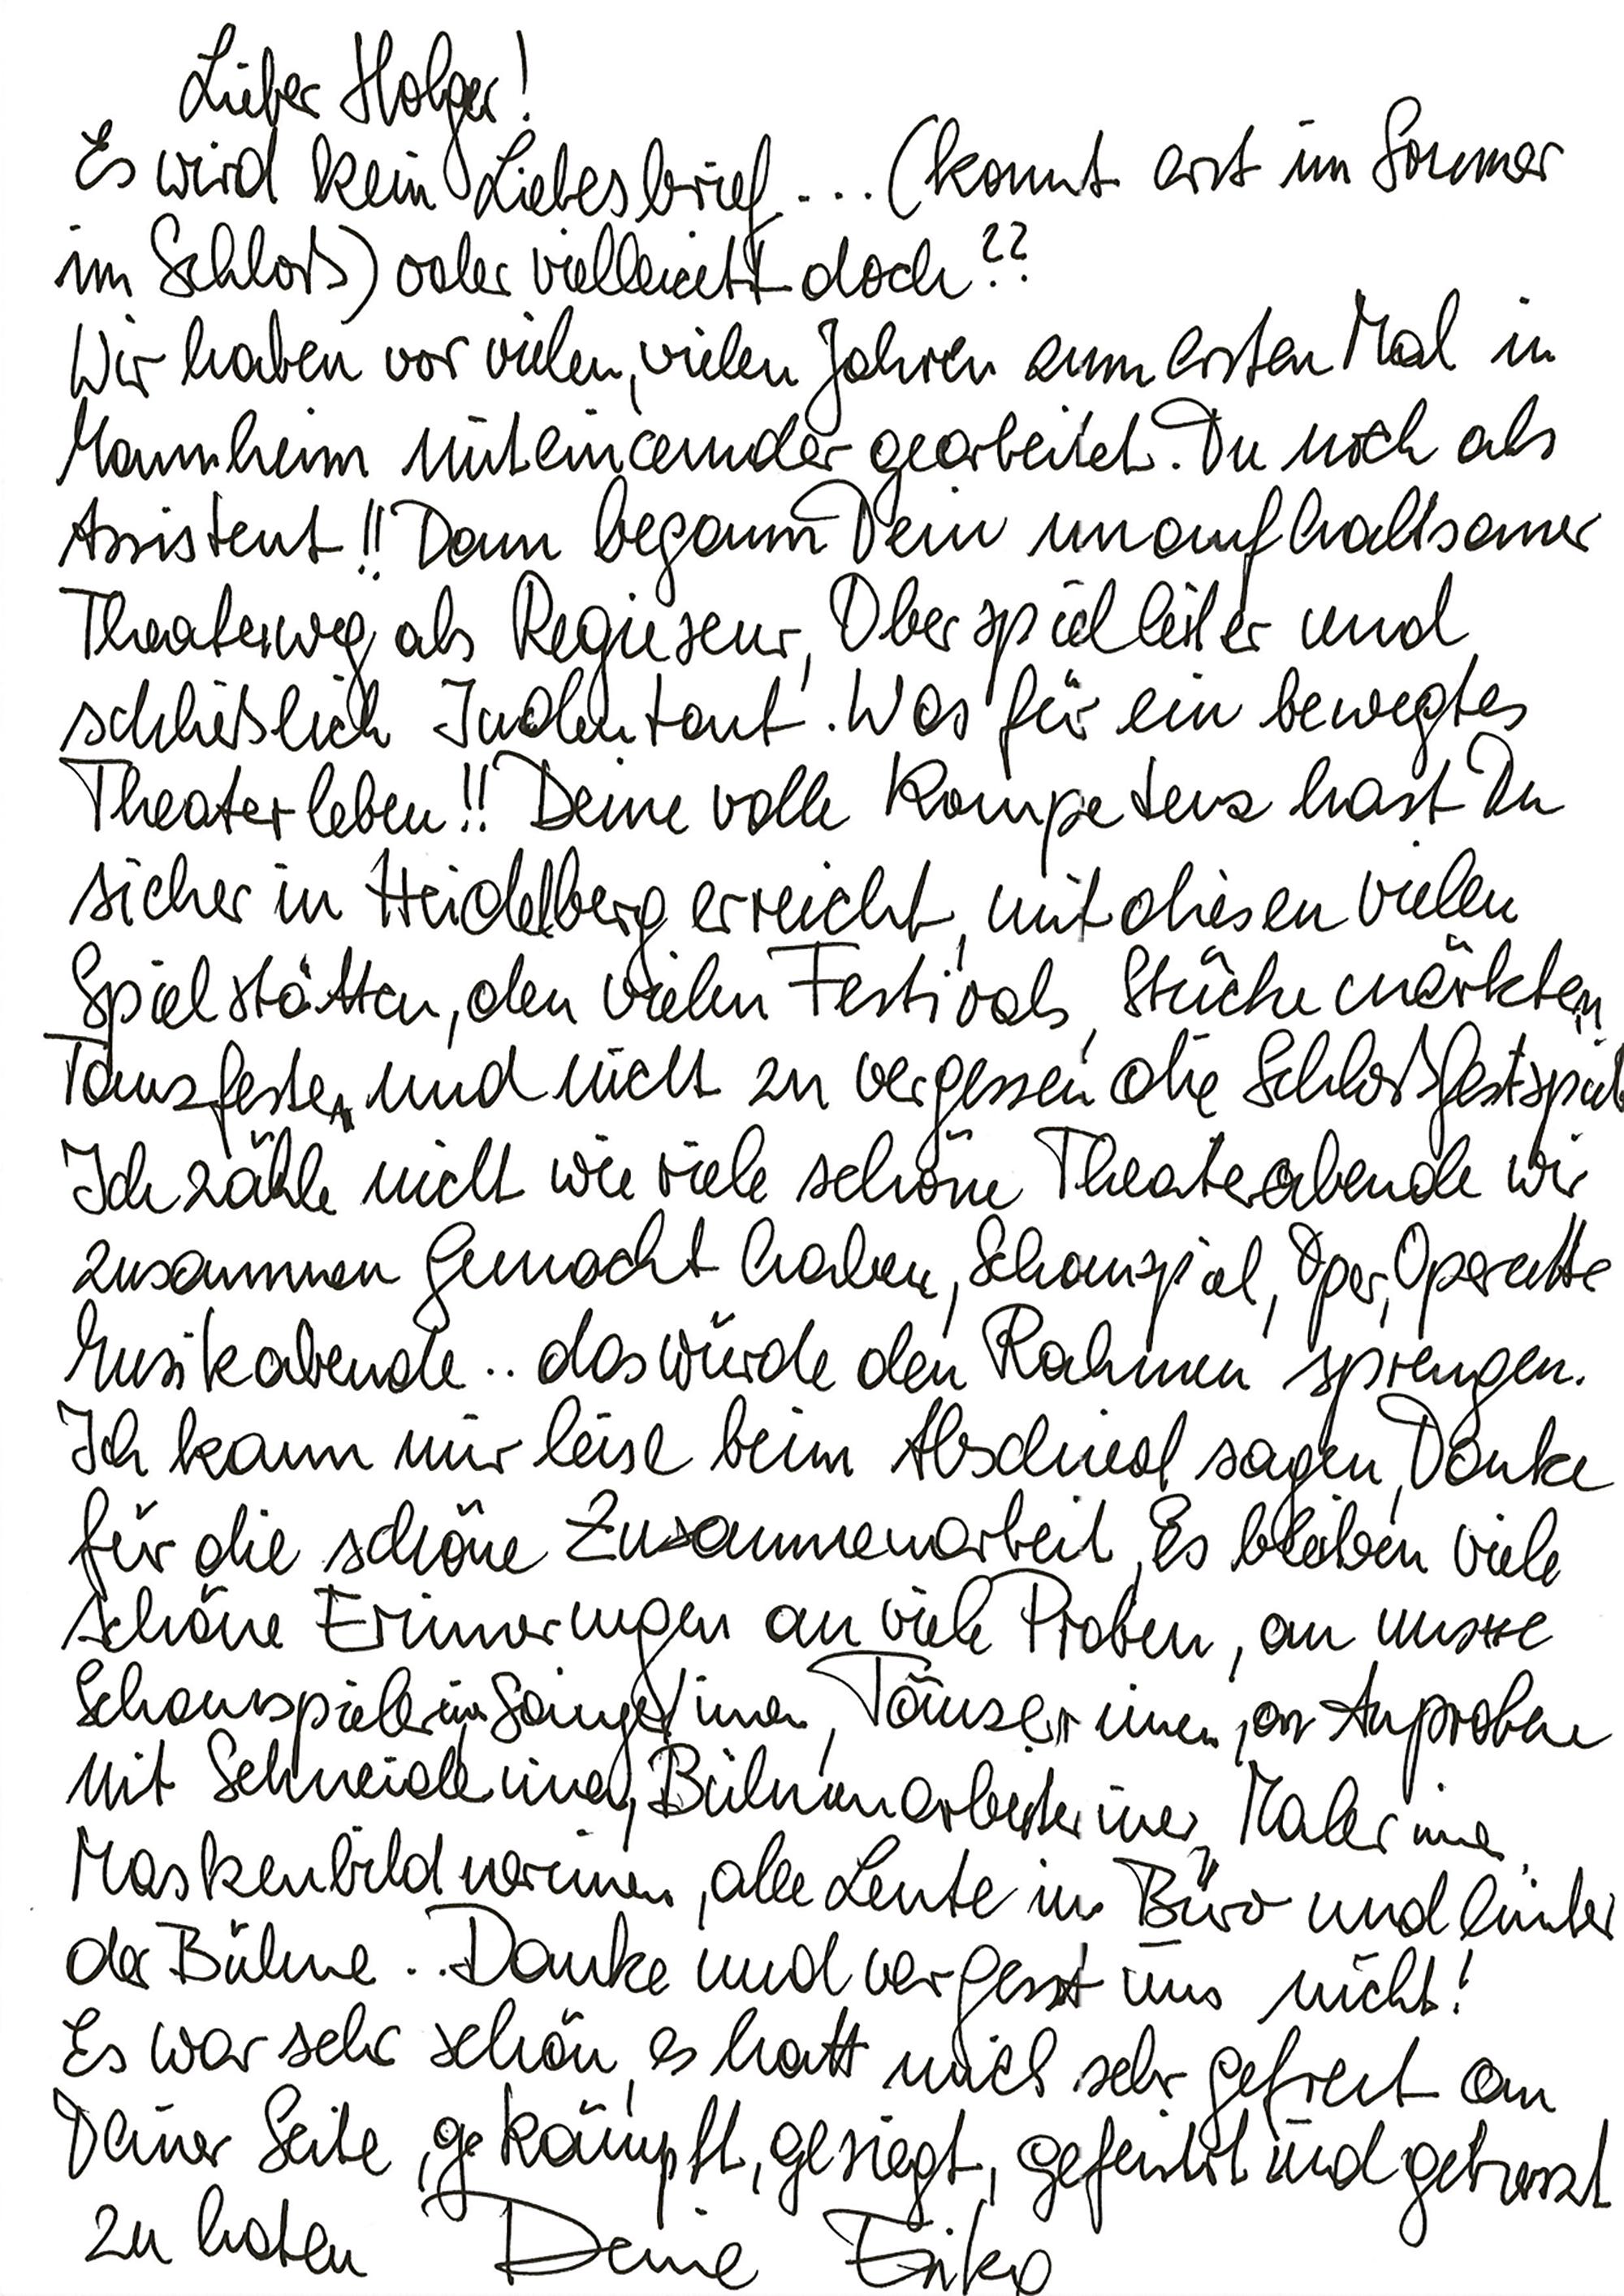 Lieber Holger!
Es wird kein Liebesbrief... (kommt erst im Sommer
im Schloß) oder vielleicht doch??
Wir haben vor vielen, vielen Jahren zum ersten Mal in
Mannheim miteinander gearbeitet. Du noch als
Assistent!! Dann begann Dein unaufhaltsamer
Theaterweg als Regieseur, Oberspielleiter und
schließlich Indentant. Was für ein bewegtes
Theaterleben!! Deine volle Kompetenz hast Du
sicher in Heidelberg erreicht, mit diesen vielen
Spielstätten, den vielen Festivals, Stückemärkten,
Tanzfesten und nicht zu vergessen die Schloßfestspiele
Ich zähle nicht wie viele schöne Theaterabende wir
zusammen gemacht haben, Schauspiel, Oper, Operette
Musikabende.. das würde den Rahmen sprengen.
Ich kann nur leise beim Abschied sagen, Danke
für die schöne Zusammenarbeit, Es bleiben viele
schöne Erinnerungen an viele Proben, an unsere
Schauspielerinnen, Sänger/innen, Tänzerinnen, an Anproben
mit Schneiderinnen, Bühnenarbeiterinnen, Malerinnen
Maskenbildnerinnen, alle Leute im Büro und hinter
der Bühne .. Danke und vergesst uns nicht!
Es war sehr schön, es hatt mich sehr gefreut an
Deiner Seite, gekämpft, gesiegt, gefeiert und getanzt
zu haben Deine